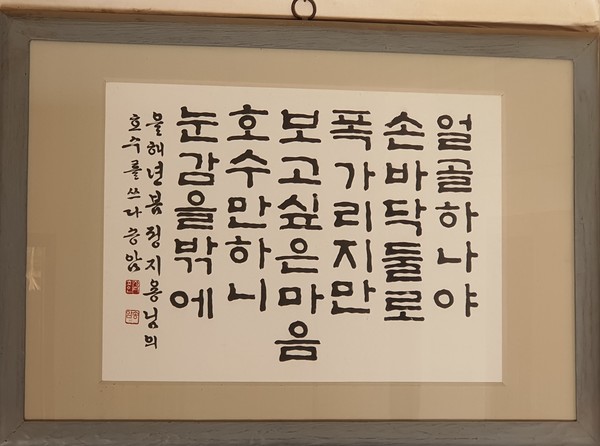 얼골하나야
손바닥둘로
폭가리지만
보고싶은마음
호수만하니
눈감을밖에
을해년봄정지용님의
호수를쓰다승암